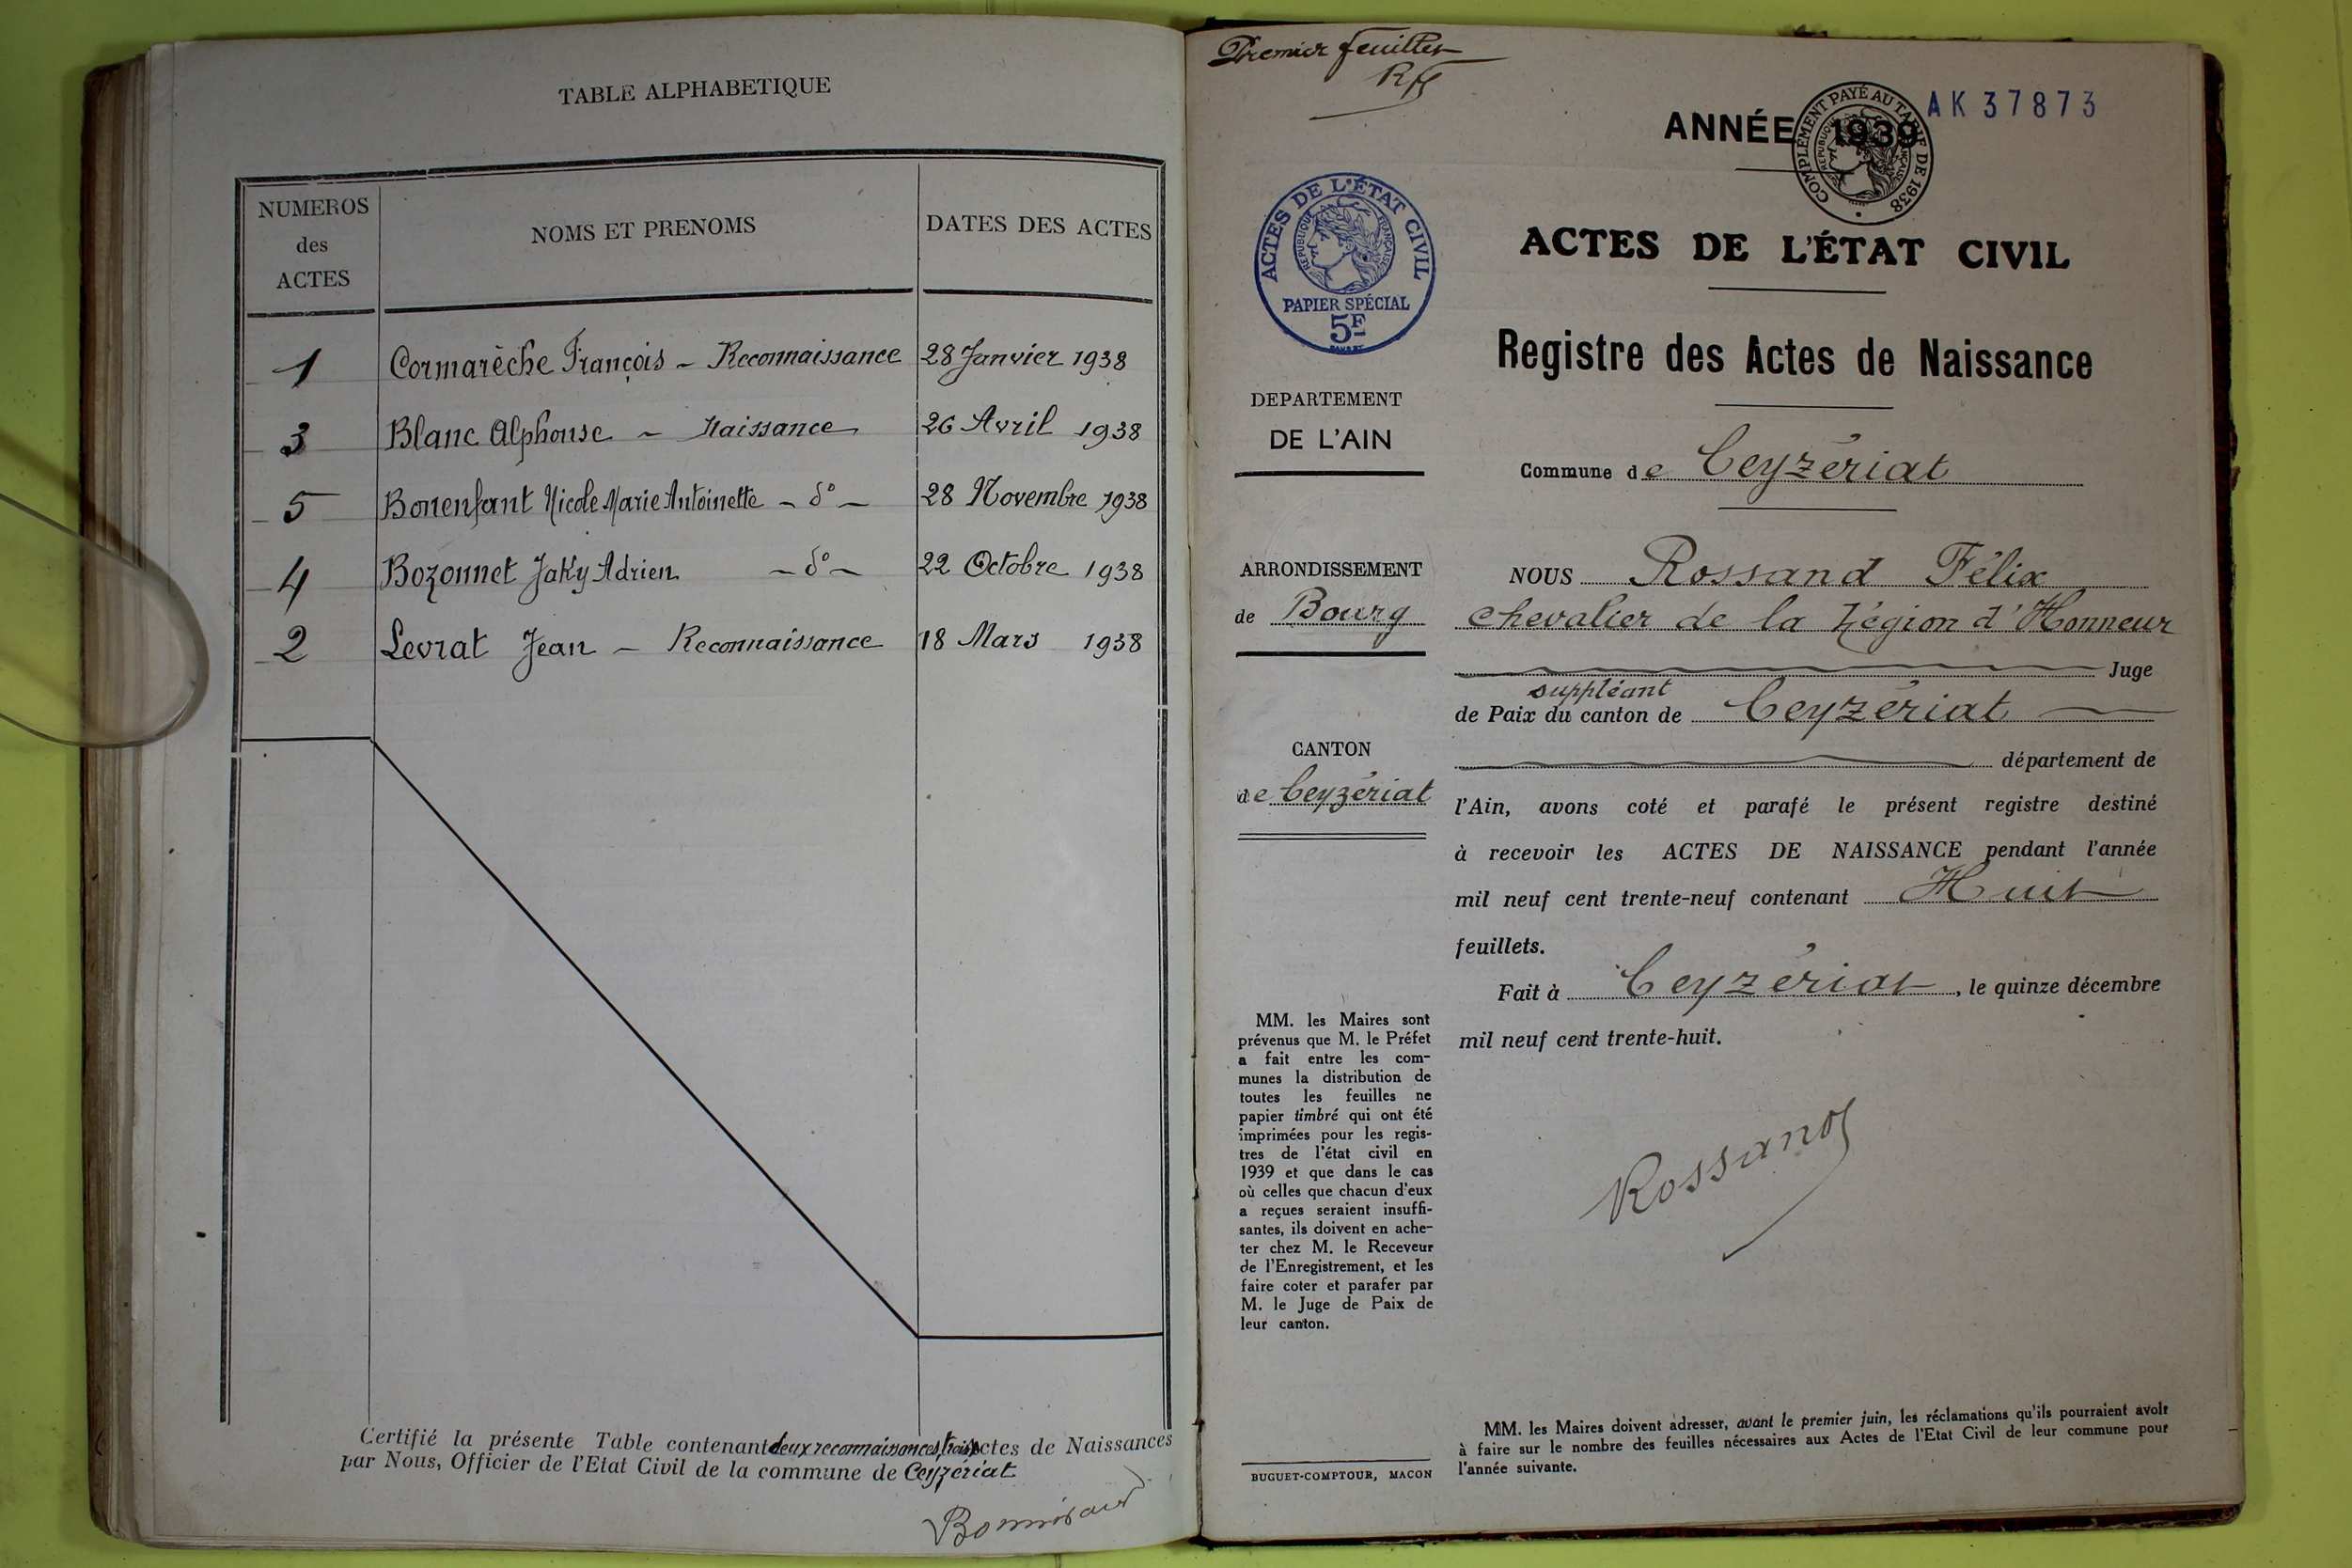 TABLE ALPHABETIQUE
NUMEROS
des
ACTES
NOMS ET PRENOMS
DATES DES ACTES
1 Cormarèche François - Reconnaissance 28 Janvier 1938
3 Blanc Alphonse - Naissance 26 Avril 1938
5 Bonenfant Nicole Marie Antoinette - d° - 28 Novembre 1938
4 Bozonnet Jaky Adrien - d° - 22 Octobre 1938
2 Levrat Jean - Reconnaissance 18 Mars 1938
Certifié la présente Table contenant deux reconnaissances, trois Actes de Naissances
par Nous, Officier de l'Etat Civil de la commune de Ceyzériat
Premier feuillet
RF
ANNÉE 1939
AK37873
COMPLÉMENT PAYÉ AU TARIF DE 1938
RÉPUBLIQUE FRANÇAISE
ACTES DE L'ÉTAT CIVIL
RÉPUBLIQUE FRANÇAISE
PAPIER SPÉCIAL
5F
ACTES DE L'ÉTAT CIVIL
Registre des Actes de Naissance
DEPARTEMENT
DE L'AIN
Commune de Ceyzériat
ARRONDISSEMENT
de Bourg
CANTON
de Ceyzériat
NOUS Rossand Félix
chevalier de la Légion d'Honneur
Juge
suppléant
de Paix du canton de Ceyzériat
département de
l'Ain, avons coté et parafé le présent registre destiné
à recevoir les ACTES DE NAISSANCE pendant l'année
mil neuf cent trente-neuf contenant Huit
feuillets.
Fait à Ceyzériat, le quinze décembre
mil neuf cent trente-huit.
Rossand
MM. les Maires sont
prévenus que M. le Préfet
a fait entre les com-
munes la distribution de
toutes les feuilles ne
papier timbré qui ont été
imprimées pour les regis-
tres de l'état civil en
1939 et que dans le cas
où celles que chacun d'eux
a reçues seraient insuffi-
santes, ils doivent en ache-
ter chez M. le Receveur
de l'Enregistrement, et les
faire coter et parafer par
M. le Juge de Paix de
leur canton.
BUGUET-COMPTOUR, MACON
MM. les Maires doivent adresser, avant le premier juin, les réclamations qu'ils pourraient avoir
à faire sur le nombre des feuilles nécessaires aux Actes de l'Etat Civil de leur commune pour
l'année suivante.